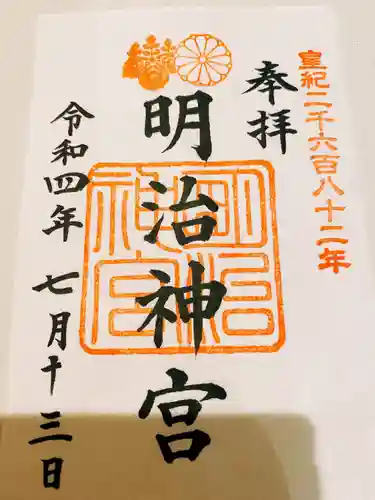 皇紀二千六百八十二年
奉拝
明治神宮
明治神宮
令和四年 七月十三日